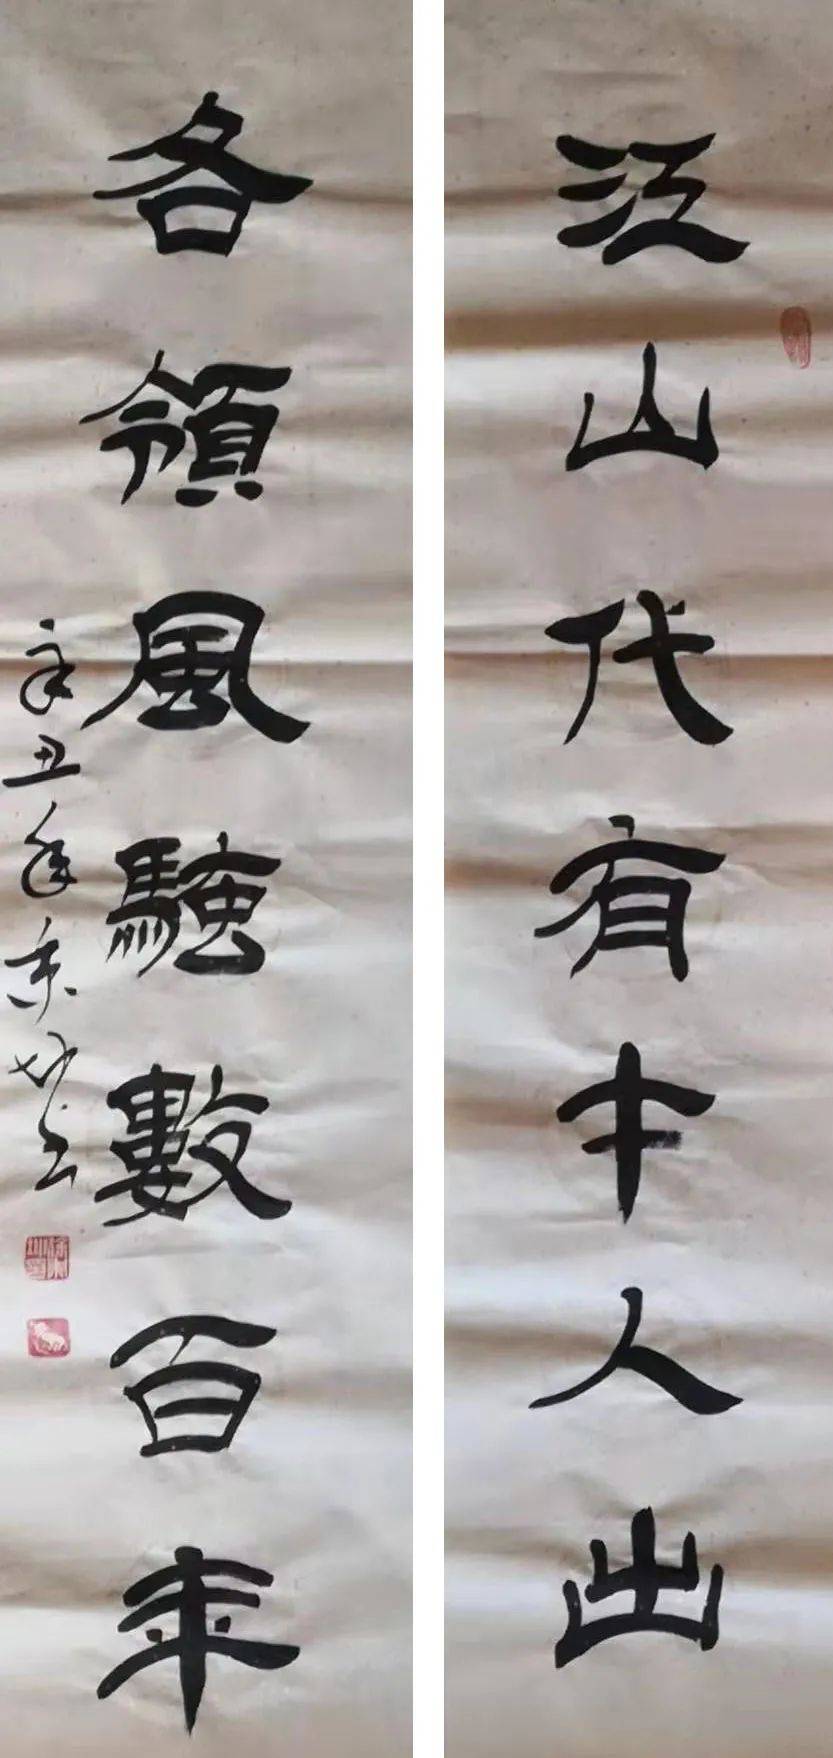 江山代有才人出
各領風騷數百年
辛丑年